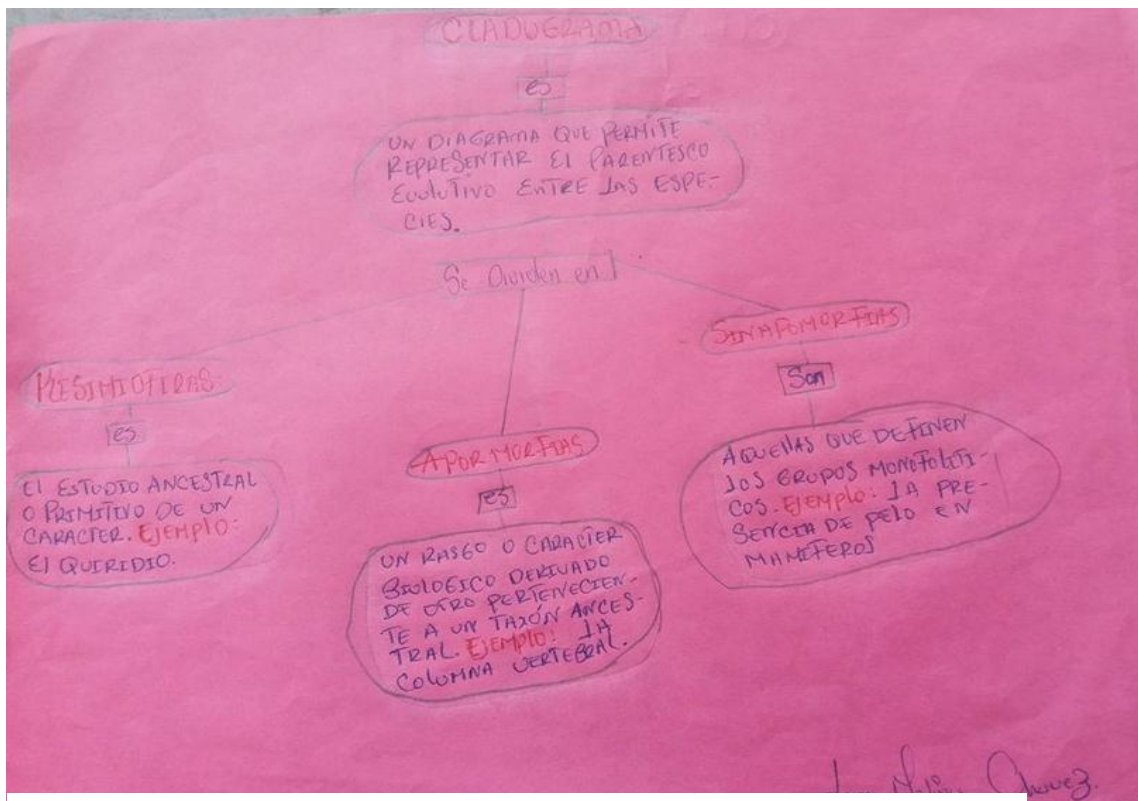 CLADUGRAMA
es
UN DIAGRAMA QUE PERMITE
REPRESENTAR El PARENTESCO
EvoluTivo ENTRE lAS ESPE-
CIES.
Se Dividen en
PLESIMIOFIRAS
es
El ESTUDIO ANCESTRAL
O PRIMITIVO DE UN
CARACTER. EJEMPLO:
El QUIRIDIO.
APORMORFIAS
es
UN RASGO O CARACTER
BIOLOGICO DERIVADO
DE OTRO PERTENECIEN-
TE A UN TAXÓN ANCES-
TRAL. EJEMPlO: lA
COlUMNA VERTEBRAL.
SINAPOMORFIAS
Son
AQUEllAS QUE DEFINEN
lOS GRUPOS MONOFOLITI-
COS. EJEMPlO: lA PRE-
SENCIA DE PElO EN
MAMIFEROS
Chavez.